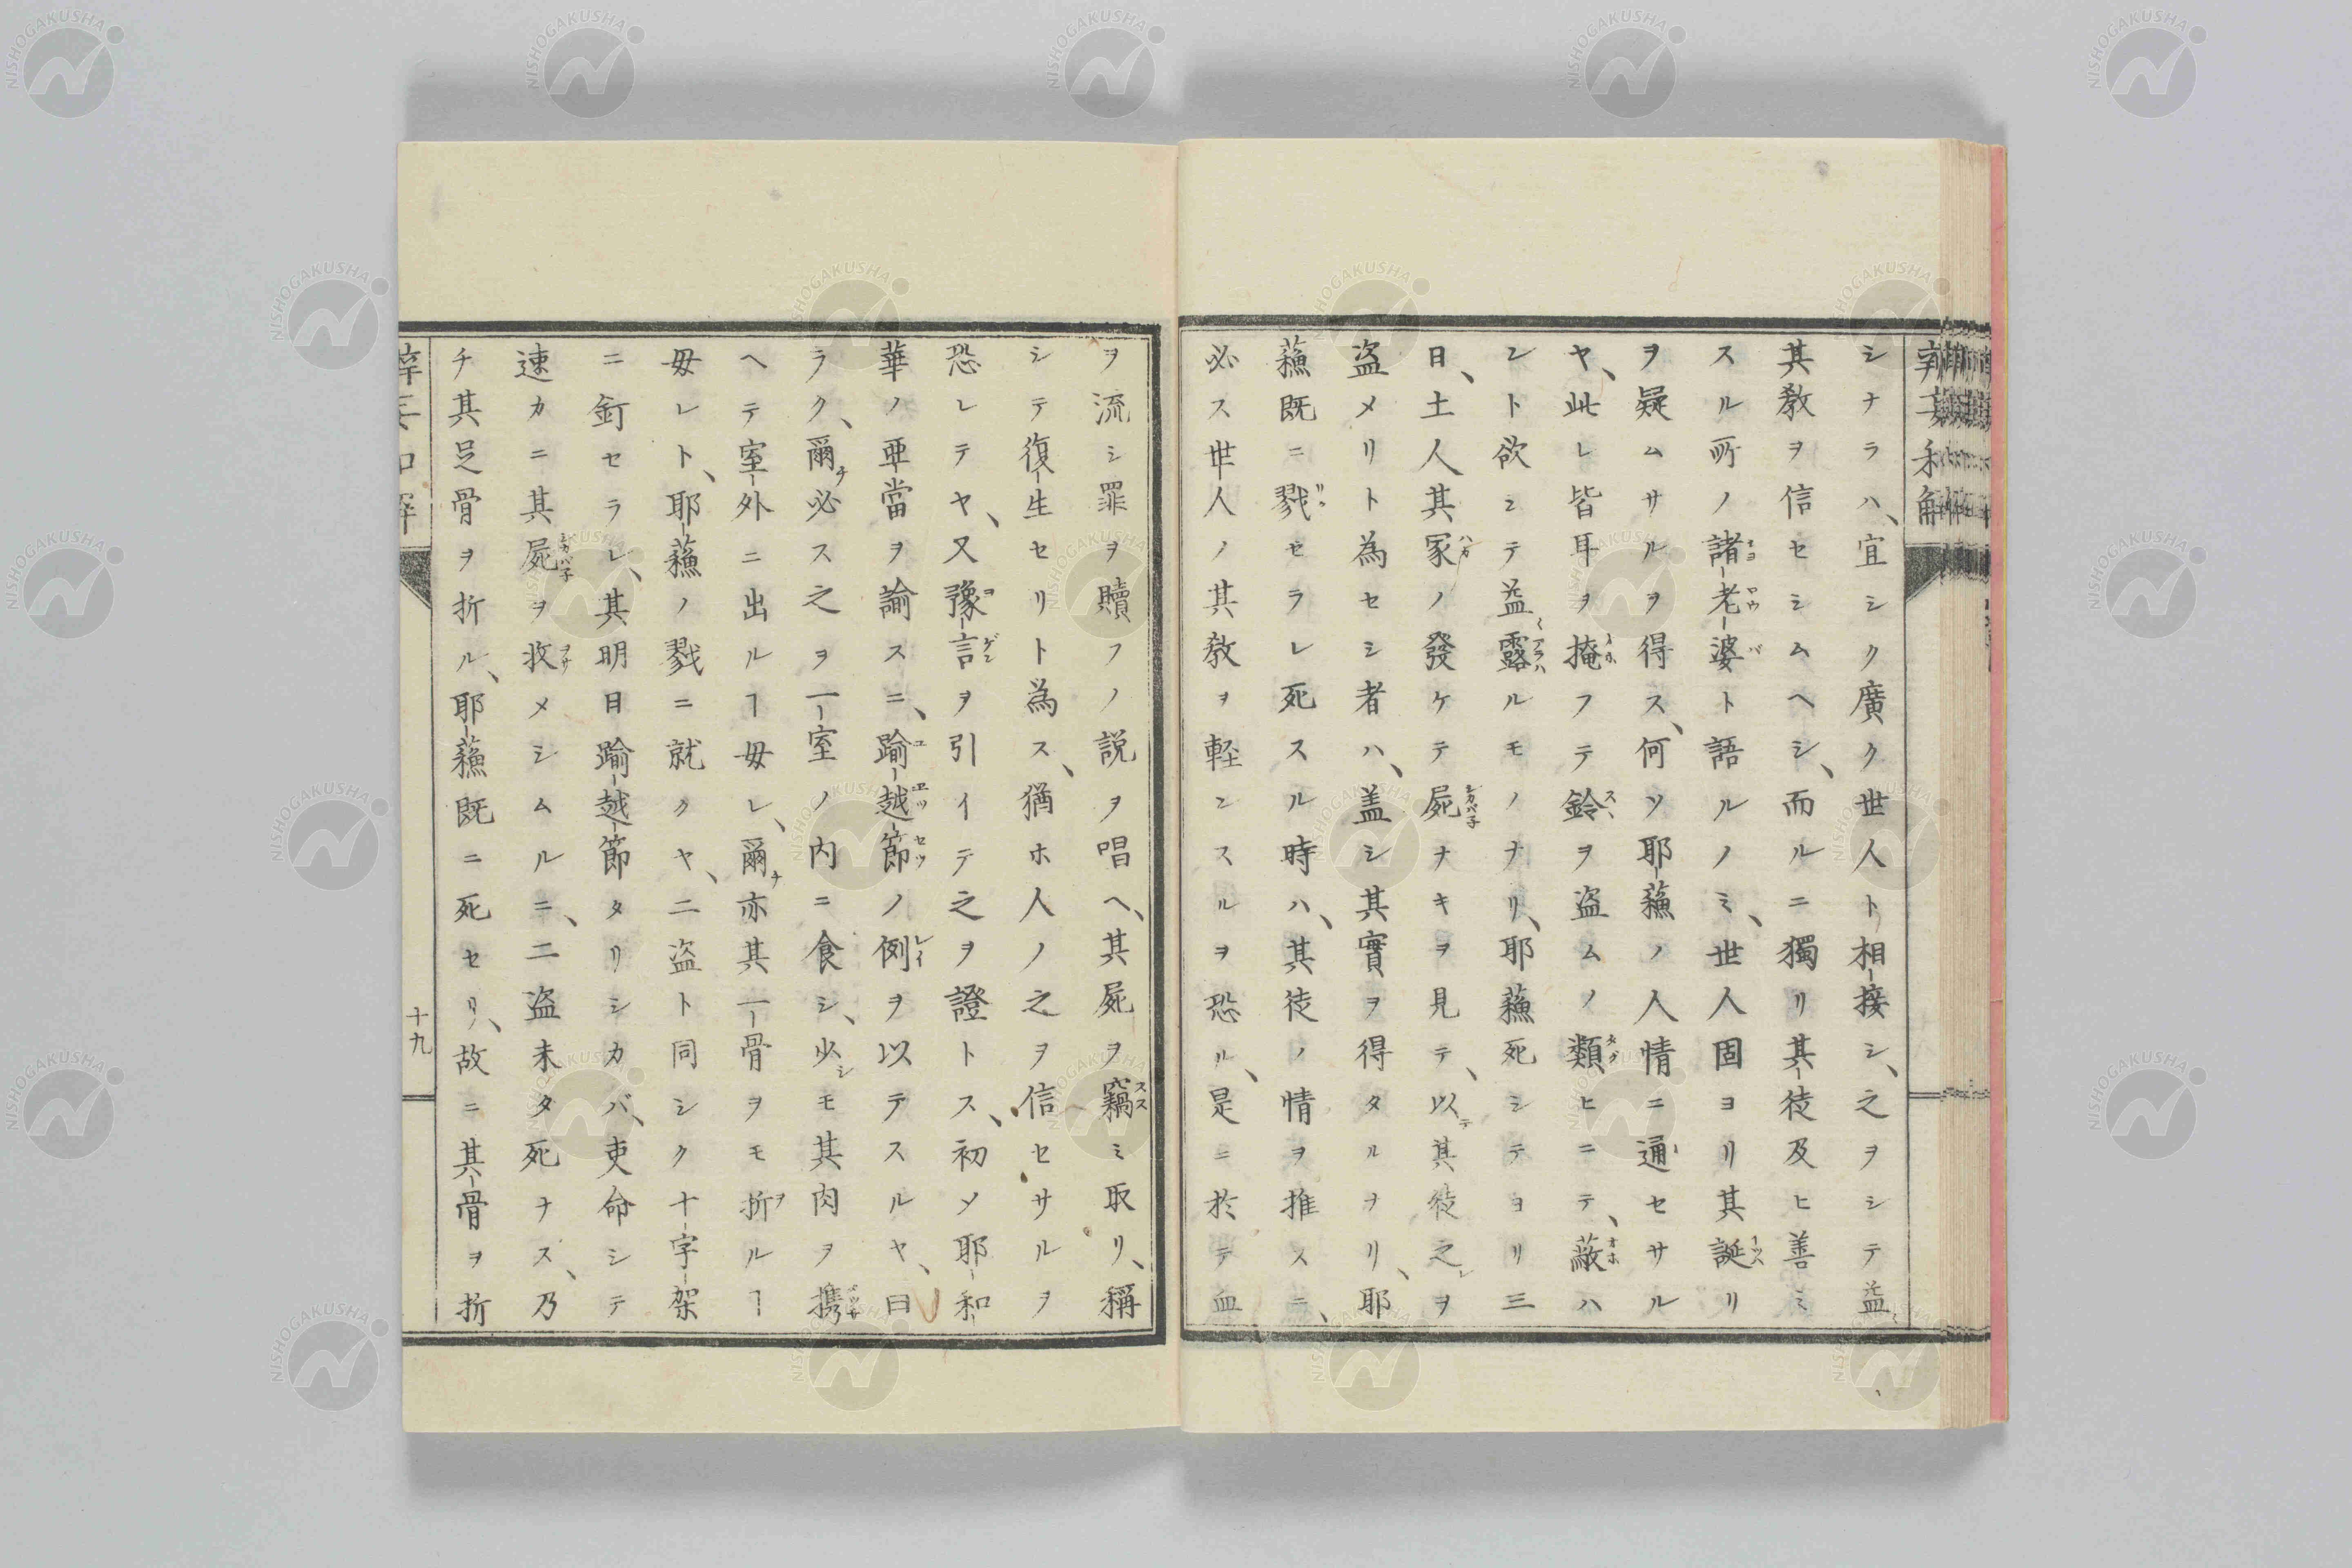 シナラハ、宜シク廣ク世人ト相接シ、之ヲシテ益〻
其教ヲ信セシムヘシ、而ルニ獨リ其徒及ヒ善ミ
スル所ノ諸老婆ト語ルノミ、世人固ヨリ其誕リ
ヲ疑ムサルヲ得ス、何ソ耶蘓ノ人情ニ通セサル
ヤ、此レ皆耳ヲ掩フテ鈴ヲ盗ムノ類ヒニテ、蔽ハ
ント欲シテ益〻露ルモノナリ、耶蘓死シテヨリ三
日、土人其冢ノ發ケテ屍ナキヲ見テ、以テ其徒之ヲ
盗メリト為セシ者ハ、盖シ其實ヲ得タルヲリ、耶
蘓既ニ戮セラレ死スル時ハ、其徒ノ情ヲ推スニ、
必ス世人ノ其教ヲ軽ンスルヲ恐ル、是ニ於テ血
ヲ流シ罪ヲ贖フノ説ヲ唱ヘ、其屍ヲ竊ミ取リ、稱
シテ復生セリト為ス、猶ホ人ノ之ヲ信セサルヲ
恐レテヤ、又豫言ヲ引イテ之ヲ證トス、初メ耶和
華ノ亜當ヲ諭スニ、踰越節ノ例ヲ以テスルヤ、曰
ラク、爾必ス之ヲ一室ノ内ニ食シ、少シモ其肉ヲ携
ヘテ室外ニ出ルヿ毋レ、爾亦其一骨ヲモ折ルヿ
毋レト、耶蘓ノ戮ニ就クヤ、二盗ト同シク十字架
ニ釘セラレ、其明日踰越節タリシカバ、吏命シテ
速カニ其屍ヲ收メシムルニ、二盗未タ死ナス、乃
チ其足骨ヲ折ル、耶蘓既ニ死セリ、故ニ其骨ヲ折
十九
NISHOGAKUSHA